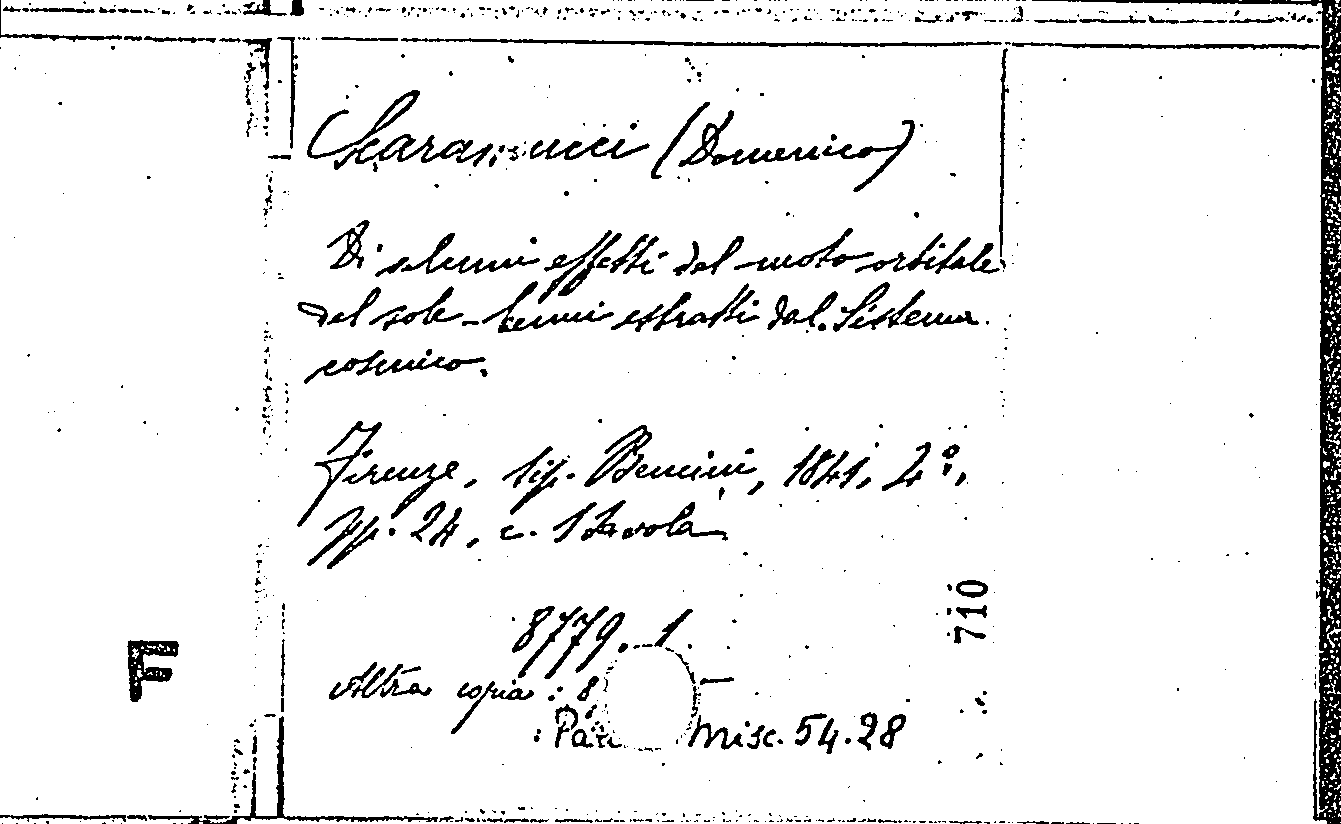 Scaramucci (Domenico)
Di alcuni effetti del moto orbitale
del sole - Cenni estratti dal Sistema
cosmico.
Firenze, tip. Bencini, 1841, 2°,
pp. 24, c. 1 tavola
8779. 1
710
F
Altra copia : 8
: Misc. 54.28